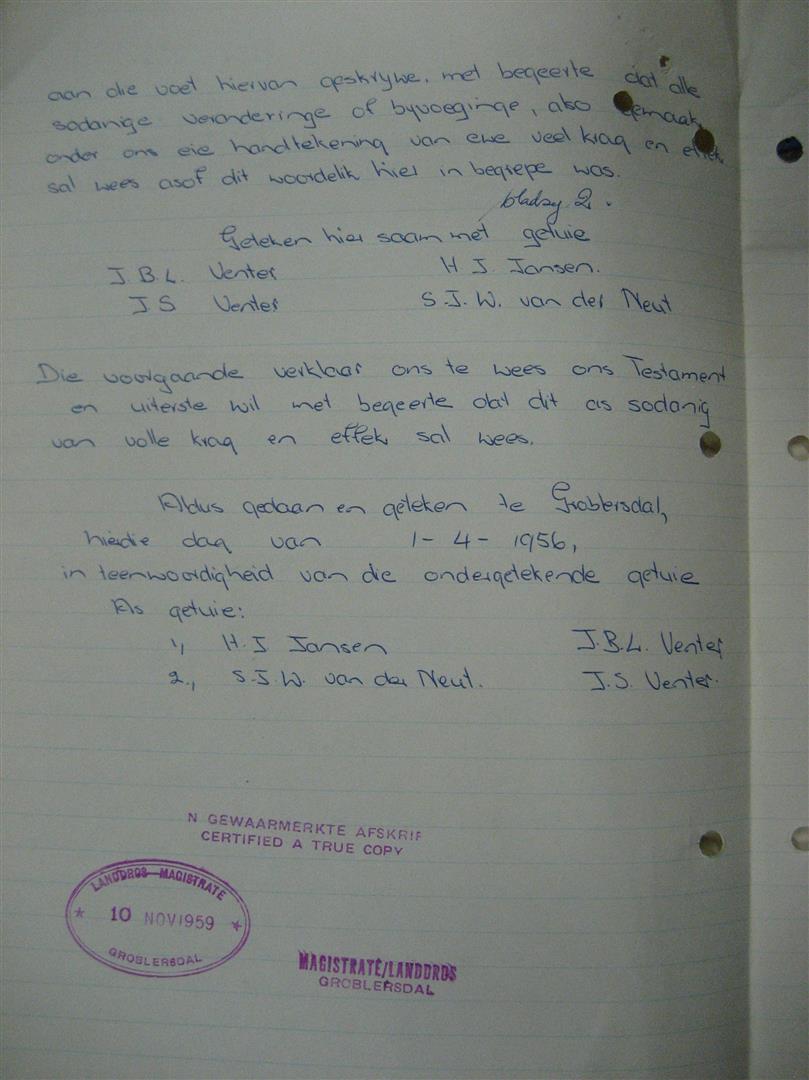 aan die voet hiervan opskrywe, met begeerte dat alle
sodanige veranderinge of byvoeginge, also gemaak,
onder ons eie handtekening van ewe veel krag en effek
sal wees asof dit woordelik hier in begrepe was.
bladsy 2.
Geteken hier saam met getuie
J.B.L. Venter H J. Jansen.
J.S Venter S.J.W. van der Neut
Die voorgaande verklaar ons te wees ons Testament
en uiterste wil met begeerte dat dit as sodanig
van volle krag en effek sal wees.
Aldus gedaan en geteken te Groblersdal,
hierdie dag van 1-4-1956,
in teenwoordigheid van die ondergetekende getuie
As getuie:
1, H.J Jansen J.B.L. Venter
2., S.J.W. van der Neut. J.S. Venter.
N GEWAARMERKTE AFSKRIF
CERTIFIED A TRUE COPY
LANDDROS-MAGISTRATE
* 10 NOV 1959 *
GROBLERSDAL
MAGISTRATE/LANDDROS
GROBLERSDAL